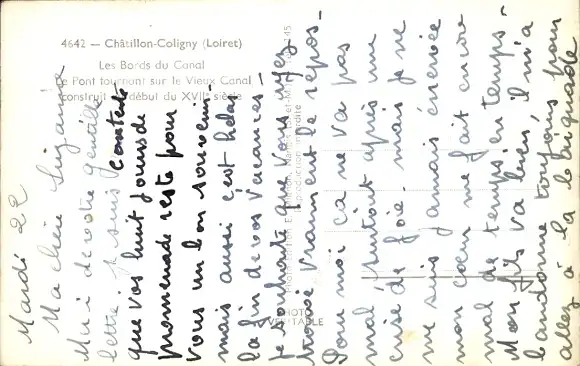 4642 — Châtillon-Coligny (Loiret)
Les Bords du Canal
Le Pont tournant sur le Vieux Canal
construit au début du XVIIe siècle
PHOTO
VÉRITABLE
Mardi 22
Ma chère Suzanne
Merci de votre gentille
lettre je suis contente
que vos huit jours de
promenade reste pour
vous un bon souvenir
mais aussi c'est hélas
la fin de vos vacances
je souhaite que vous ayez
trouvé vraiment le repos
Pour moi ca ne va pas
mal surtout après une
cure de foie. mais je ne
me suis jamais énervée
mon cœur me fait encore
mal de temps en temps
Mon fils va bien, il m'a
bandonne toujours pour
allez à la